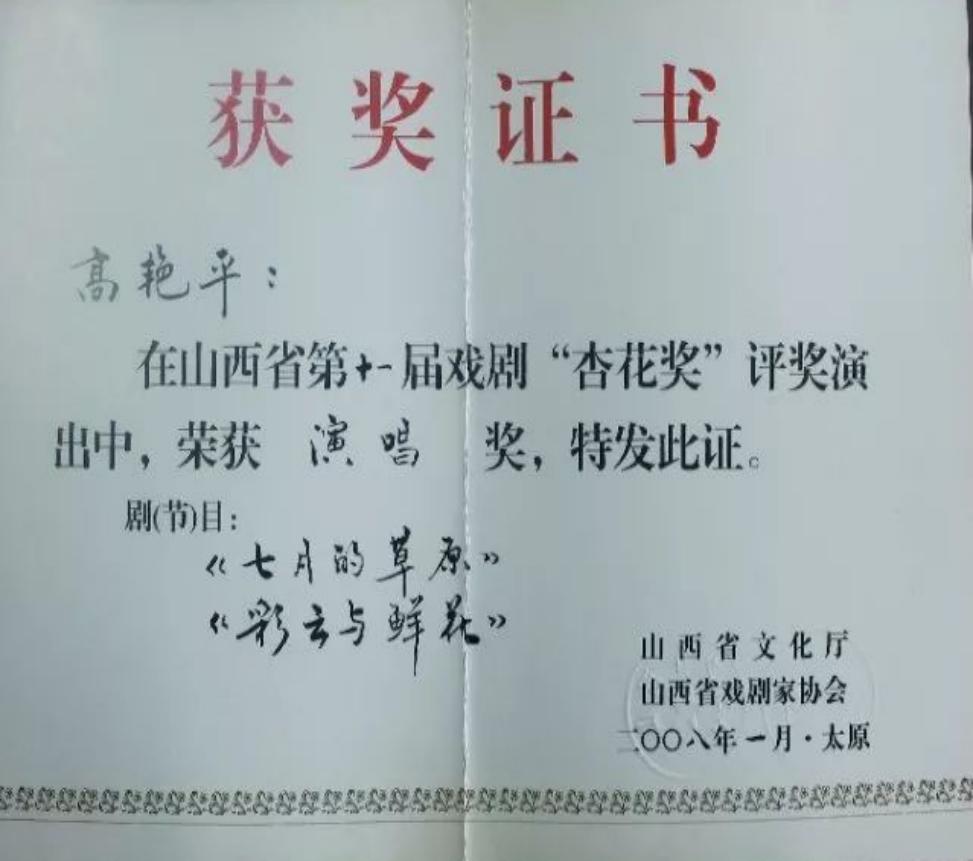 获奖证书
高艳平：
在山西省第十一届戏剧“杏花奖”评奖演
出中，荣获 演唱 奖，特发此证。
剧(节)目：
《七月的草原》
《彩云与鲜花》
山西省文化厅
山西省戏剧家协会
二〇〇八年一月·太原